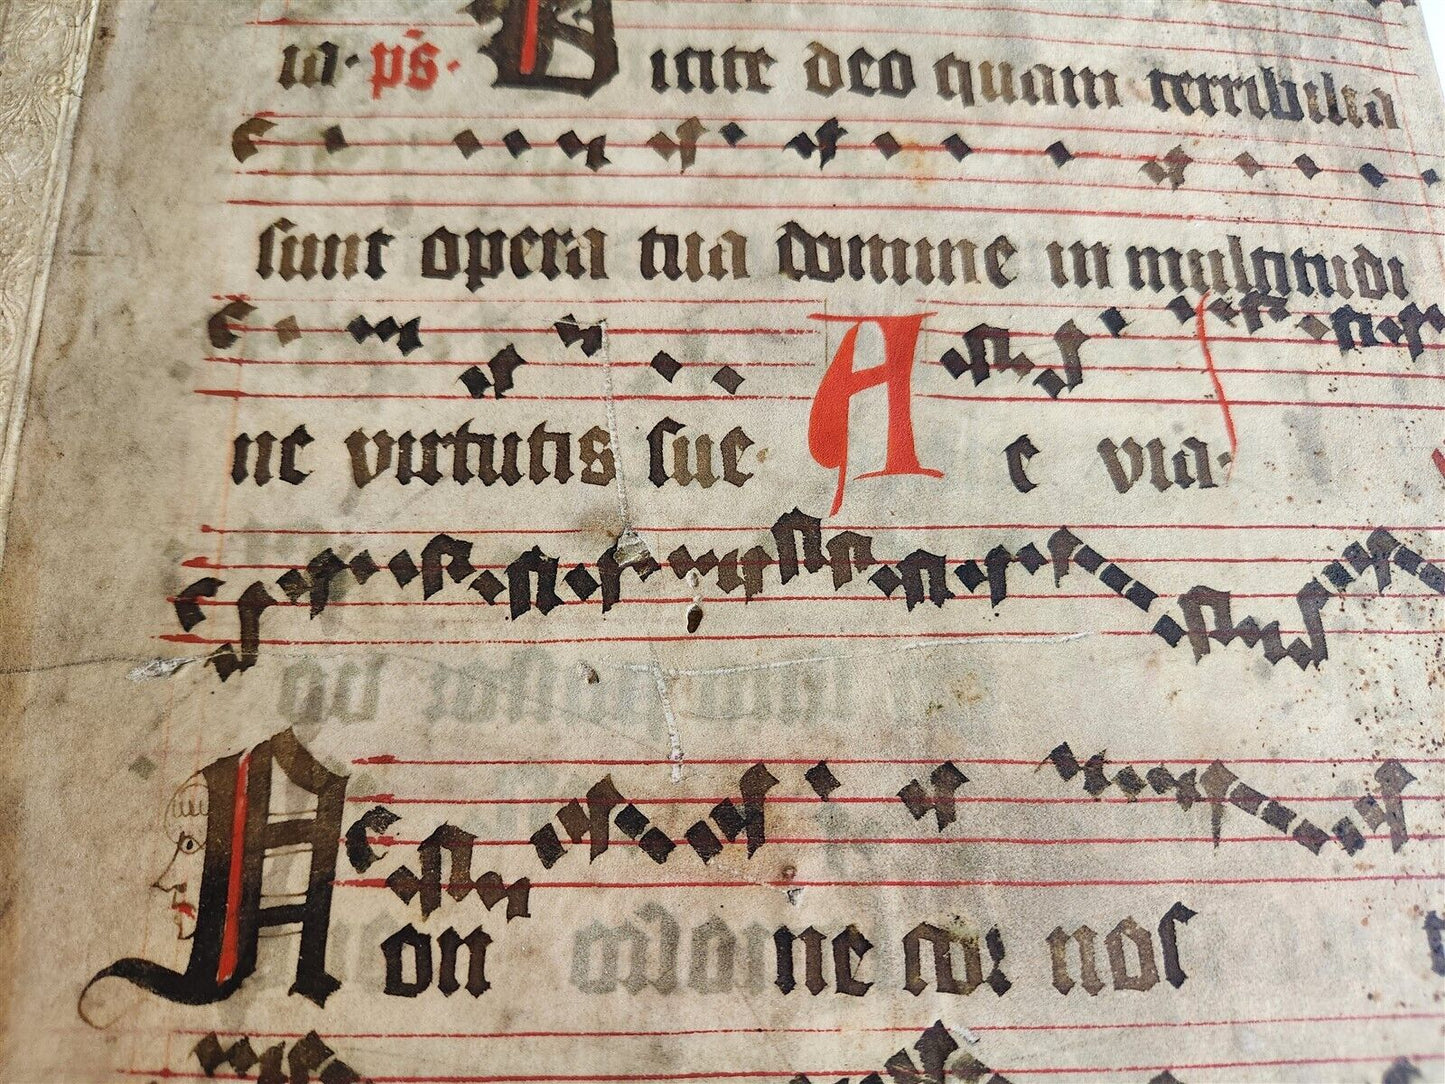 ia· ps· Dicite deo quam terribilia
sunt opera tua domine in multitudi
ne virtutis sue· A e via·
Non ne cor nos